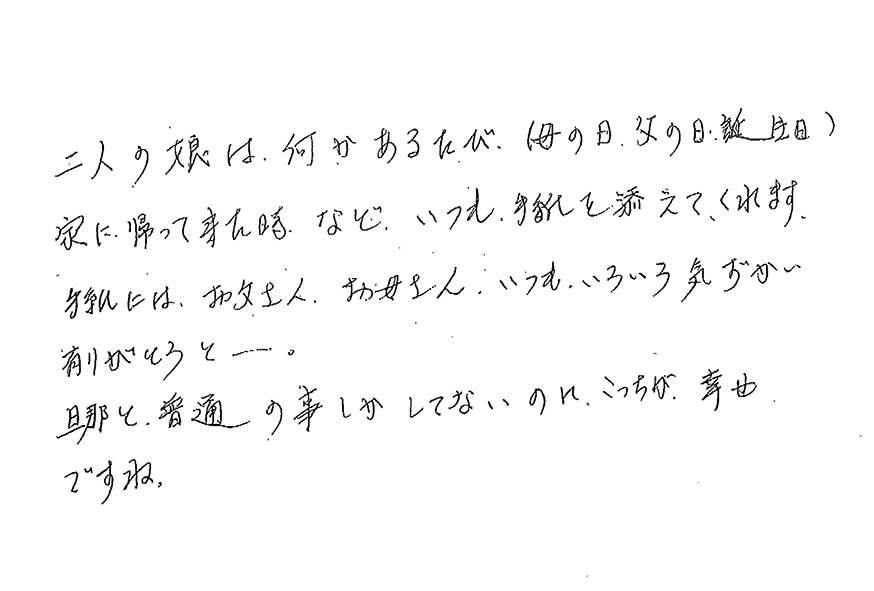 二人の娘は、何かあるたび、(母の日、父の日、誕生日)
家に、帰って来た時、など、いつも、手紙を添えて、くれます、
手紙には、お父さん、お母さん、いつも、いろいろ気ずかい
有りがとうと―。
旦那と、普通の事しかしてないのに、こっちが、幸せ
ですね。